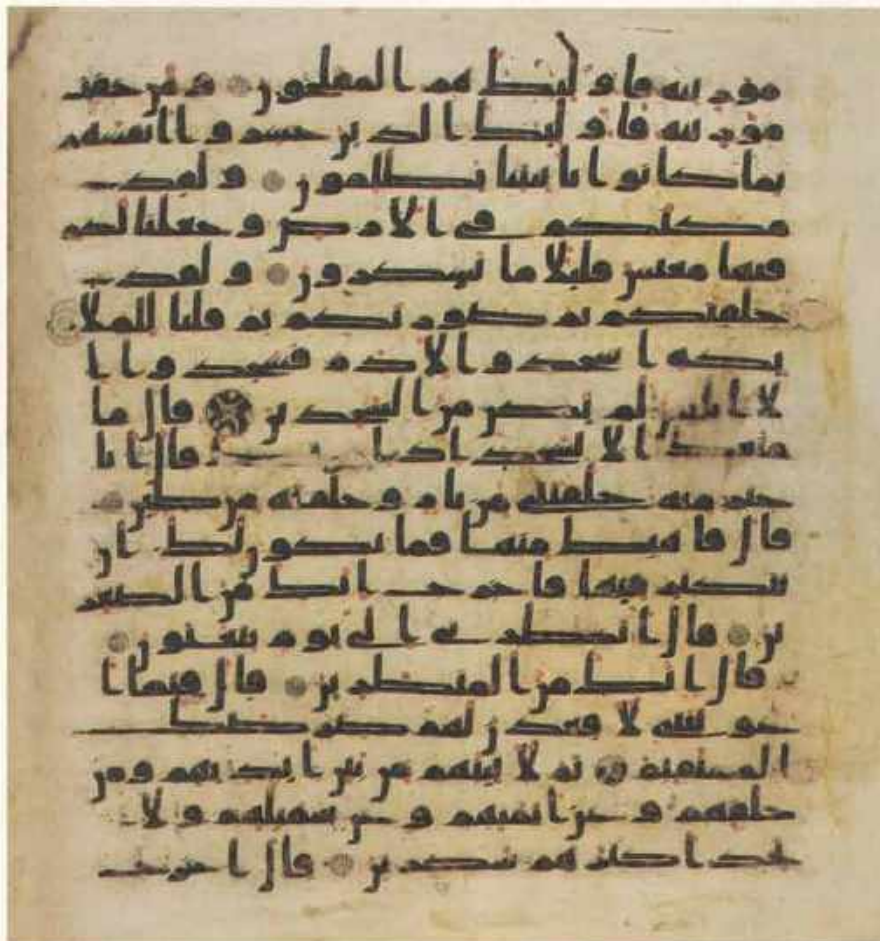 موزينه فاولئك هم المفلحون ومن خفت
موزينه فاولئك الذين خسروا انفسهم
بما كانوا باييتنا يظلمون ولقد
مكنكم في الارض وجعلنا لكم
فيها معيش قليلا ما تشكرون ولقد
خلقنكم ثم صورنكم ثم قلنا للملا
يكه اسجدوا لادم فسجدوا ا
لا ابليس لم يكن من السجدين قال ما
منعك الا تسجد اذ ا قال انا
خير منه خلقتني من نار وخلقته من طين
قال فاهبط منها فما يكون لك ان
تتكبر فيها فاخرج انك من الصغر
ين قال انظرني الى يوم يبعثون
قال انك من المنظرين قال فبما ا
غويتني لاقعدن لهم صرطك
المستقيم ثم لاتينهم من بين ايديهم ومن
خلفهم وعن ايمنهم وعن شمايلهم ولا
تجد اكثرهم شكرين قال اخرج